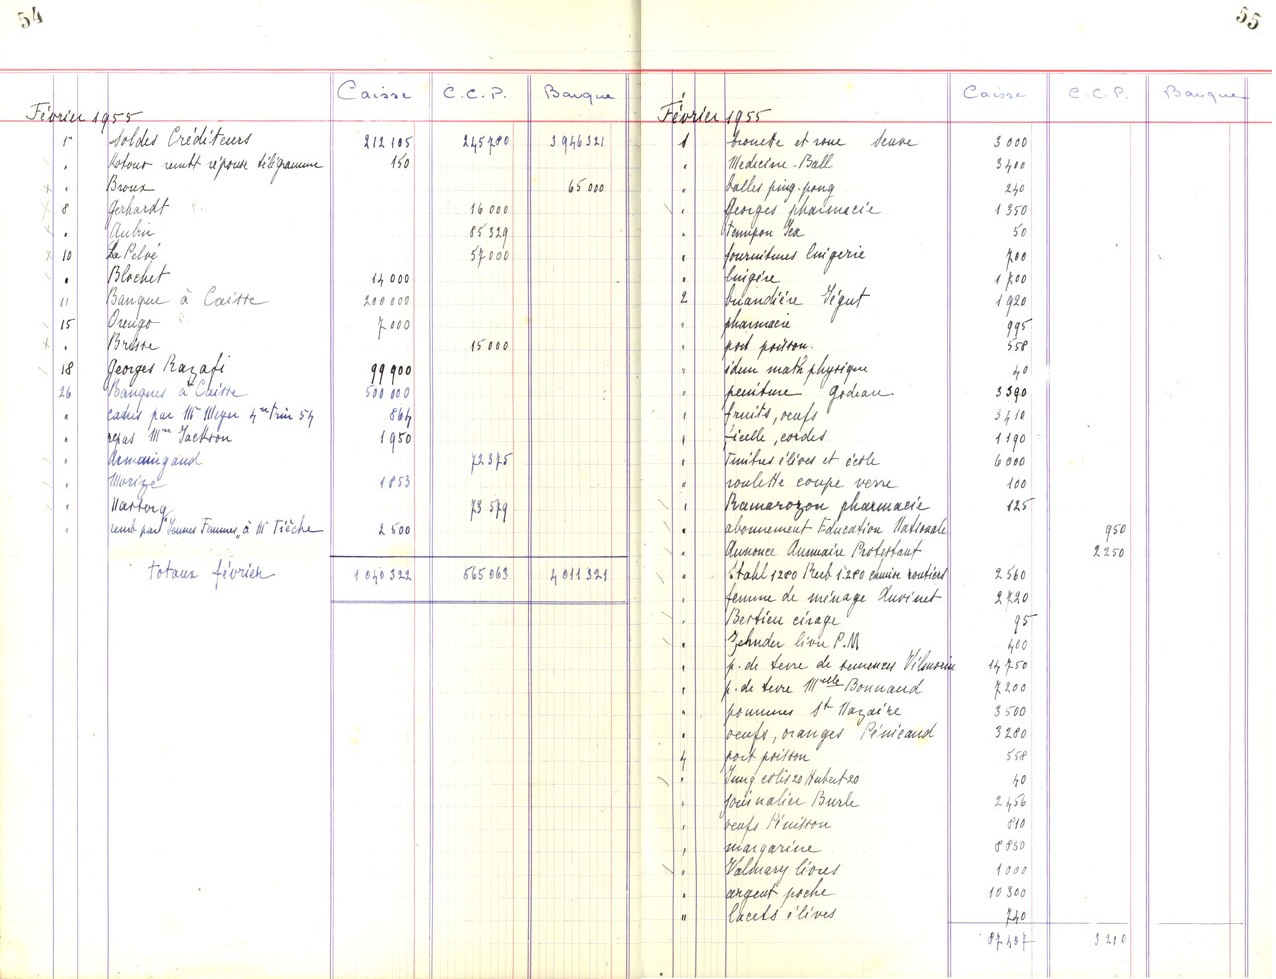 54
Caisse C.C.P. Banque
Février 1955
1er Soldes Créditeurs 212 105 245 780 3 946 321
" Retour rembt réponse télégramme 150
" Broux 65 000
8 Gerhardt 16 000
" Aubin 85 329
10 Le Pelvé 57 000
" Blochet 14 000
11 Banque à Caisse 200 000
15 Orengo 7 000
" Brisse 15 000
18 Georges Razafi 99 900
26 Banques à Caisse 500 000
" par Mr Meyer 4me Trim 54 864
" repas Mme Jackson 1 950
" Armaingaud 72 375
" Morize 1 853
" 73 579
" remb par "Jeunes Femmes" à Mr Tièche 2 500
totaux février 1 040 322 565 063 4 011 321
55
Caisse C.C.P. Banque
Février 1955
1 brouette et roue 3 000
" Medecine-Ball 3 400
" balles ping-pong 240
" Georges pharmacie 1 350
" Tampon 50
" fournitures lingerie 700
" lingère 1 700
2 buandière Ségut 1 920
" pharmacie 995
" port poisson 558
" idem math physique 40
" peinture Godeau 3 390
" fruits, oeufs 3 410
" ficelle, cordes 1 190
" Timbres élèves et école 6 000
" roulette coupe verre 100
" Ramarozon pharmacie 125
" abonnement Education Nationale 950
" Annonce Annuaire Protestant 2 250
" Stahl 1280 1.280 routiers 2 560
" femme de ménage Auvinet 2 720
" Bertieu cirage 95
" Zehnder livre P.M 400
" p. de terre de semences Vilmorin 14 750
" p. de terre Melle Bonnaud 7 200
" pommes St Nazaire 3 500
" oeufs, oranges Pénicaud 3 280
4 port poisson 558
" Jung colis 20 Hubert 20 40
" journalier Burle 2 456
" oeufs 810
" margarine 8 830
" Valmary livres 1 000
" argent poche 10 300
" lacets élèves 740
87 407 3 200